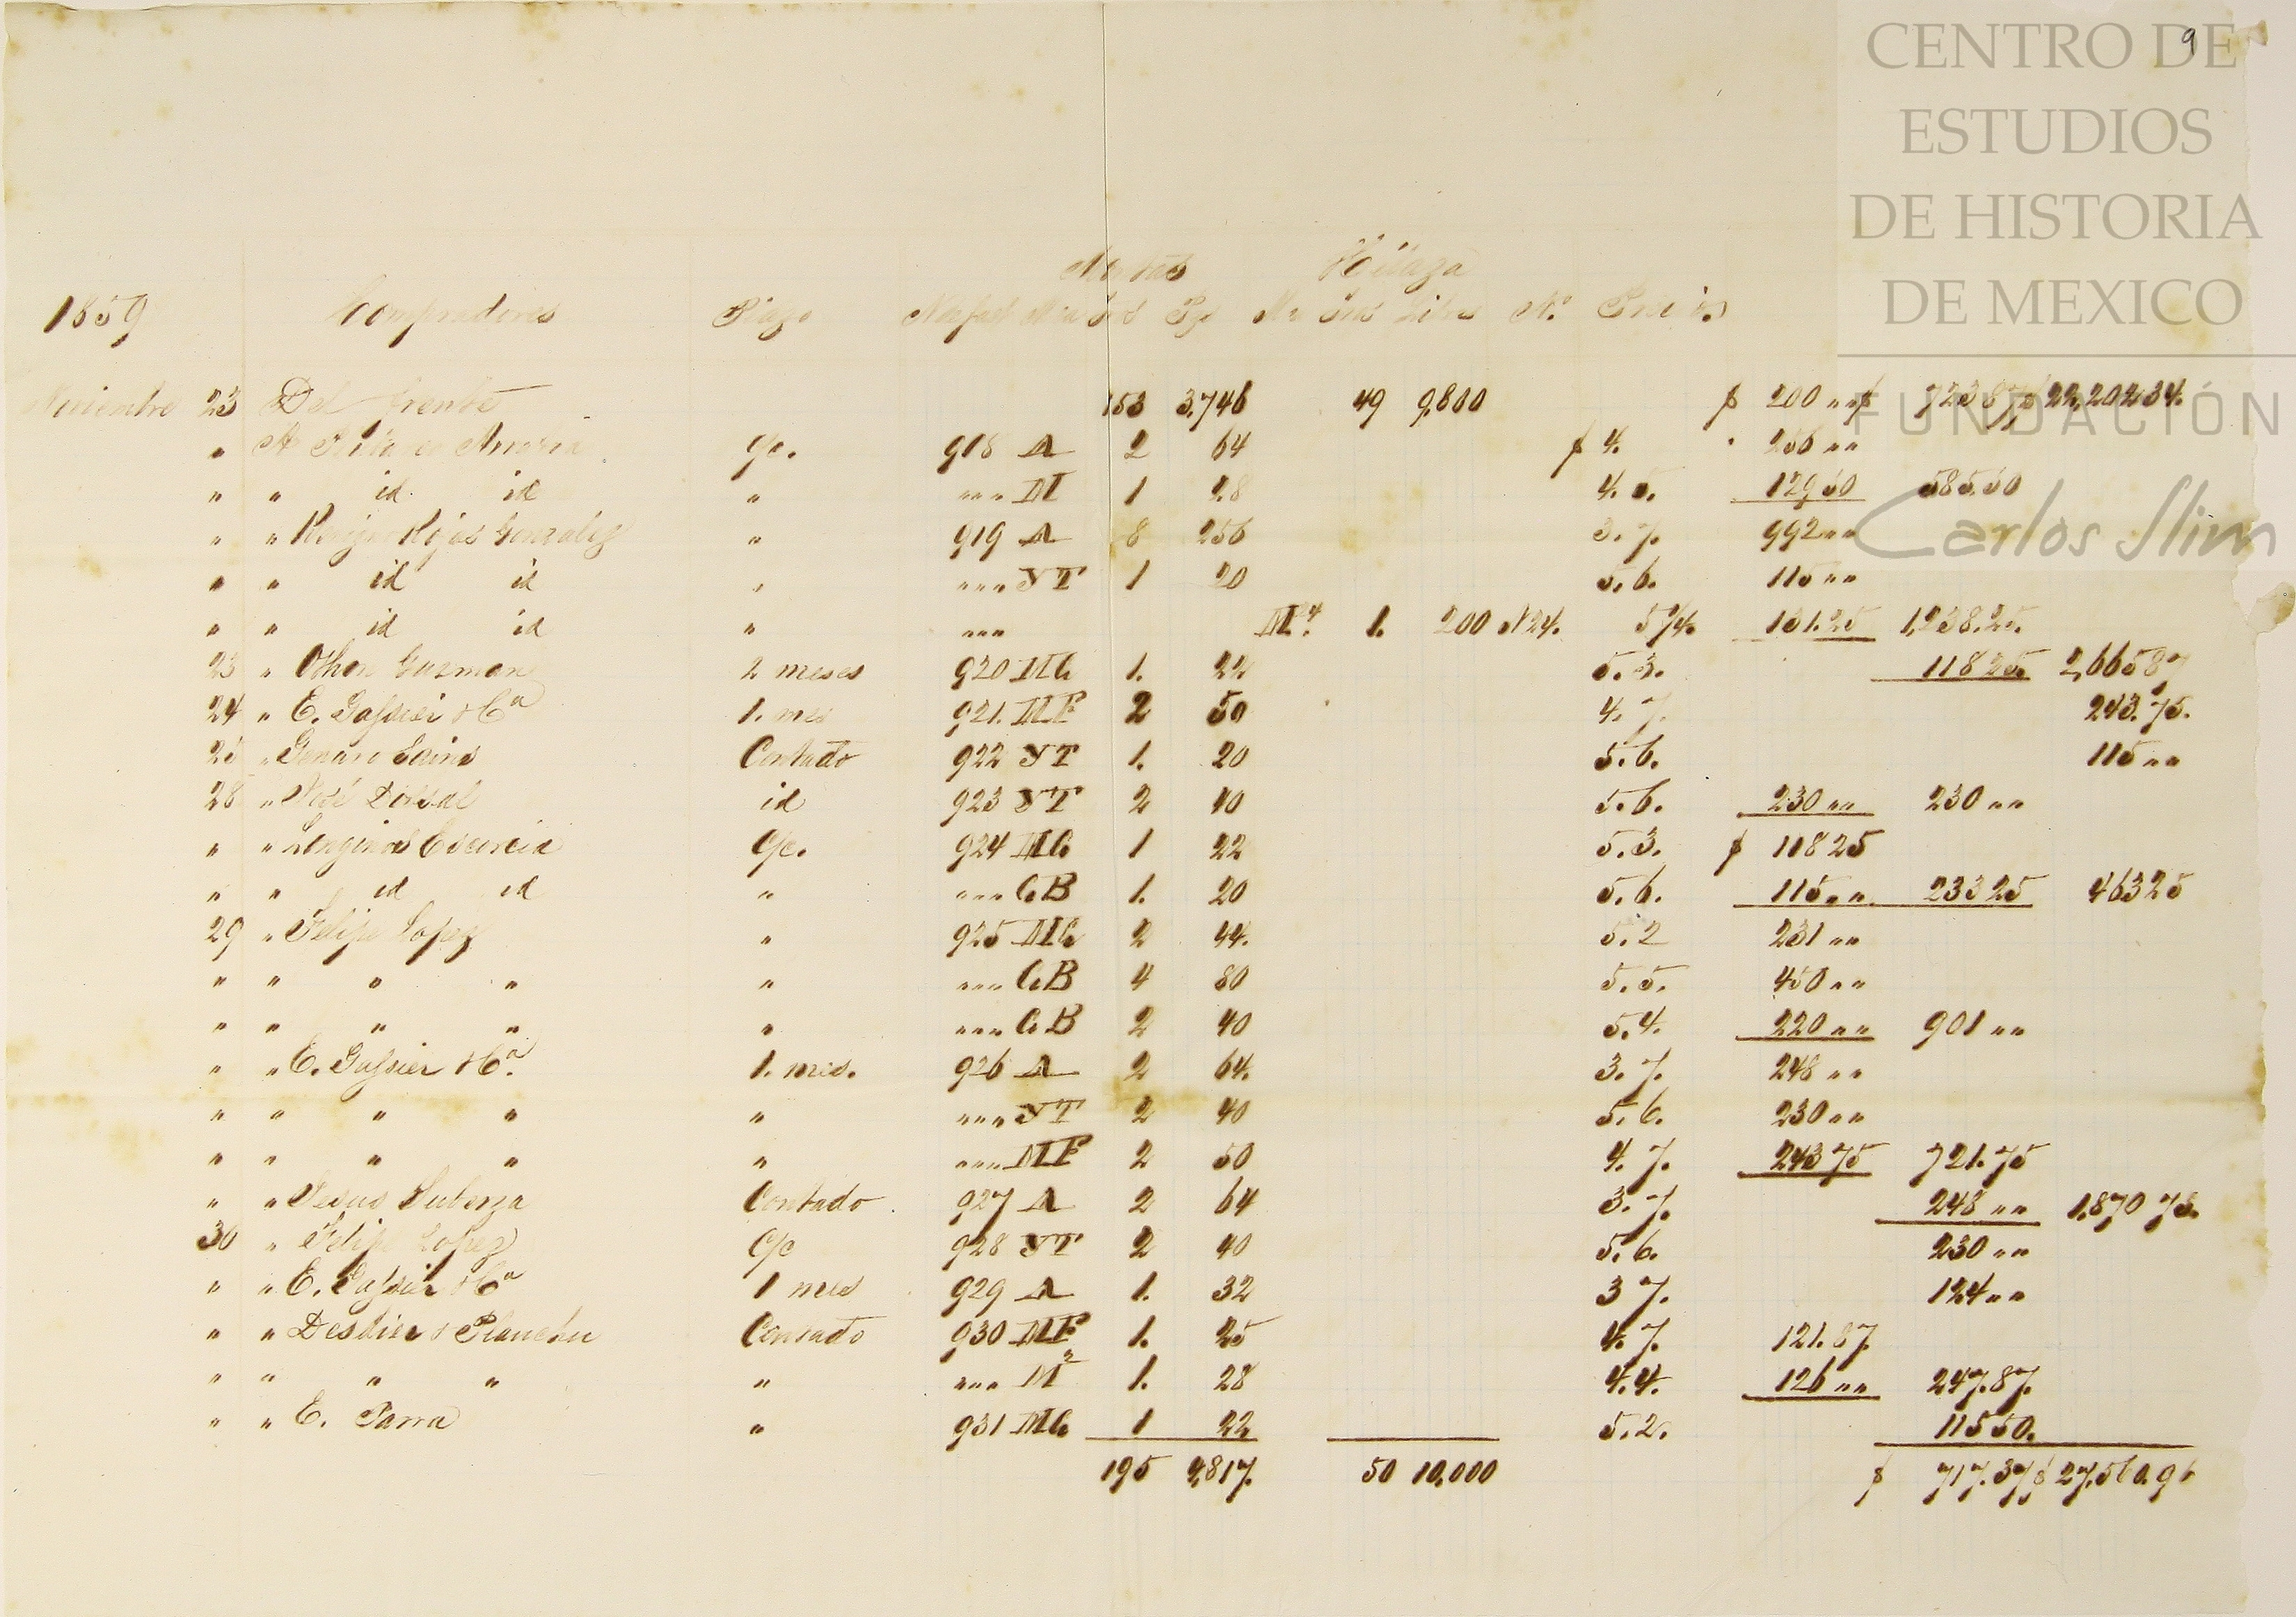 9
CENTRO DE
ESTUDIOS
DE HISTORIA
DE MEXICO
FUNDACIÓN
Carlos Slim
Mantas Hilaza
1859 Compradores Plazo Bultos Pzs Libs N.º Precios
Noviembre 23 Del frente 153 3,746 49 9,800 $ 200 „ „ $ 723 87 $ 22,202 34.
„ A c/c. 918 A 2 64 $ 4. 256 „ „
„ „ id. id „ „ „ „ M 1 28 4. 5. 129 50 585.50
„ „ Rojas Gonzalez „ 919 A 8 256 3. 7. 992 „ „
„ „ id id „ „ „ „ YT 1 20 5. 6. 115 „ „
„ „ id id „ „ „ „ 1. 200 N 24. 5 1/4. 131.25 1,238.25.
23 „ Othon Guzman 2 meses 920 MC 1. 22 5. 3. 118 25. 2,665 87
24 „ E. Gassier & Cª 1. mes 921. MF 2 50 4. 7. 243. 75.
25 „ Genaro Contado 922 YT 1. 20 5. 6. 115 „ „
28 „ José id 923 YT 2 40 5. 6. 230 „ „ 230 „ „
„ „ Longinos c/c. 924 MC 1 22 5. 3. $ 118 25
„ „ id id „ „ „ „ CB 1. 20 5. 6. 115 „ „ 233 25 463 25
29 „ Felipe Lopez „ 925 MC 2 44. 5. 2 231 „ „
„ „ „ „ „ „ „ „ CB 4 80 5. 5. 450 „ „
„ „ „ „ „ „ „ „ CB 2 40 5. 4. 220 „ „ 901 „ „
„ „ E. Gassier & Cª. 1. mes. 926 A 2 64. 3. 7. 248 „ „
„ „ „ „ „ „ „ „ YT 2 40 5. 6. 230 „ „
„ „ „ „ „ „ „ „ MF 2 50 4. 7. 243 75 721. 75
„ „ Jesus Contado 927 A 2 64 3. 7. 248 „ „ 1,870 75.
30 „ Felipe Lopez c/c 928 YT 2 40 5. 6. 230 „ „
„ „ E. Gassier & Cª 1 mes 929 A 1. 32 3 7. 124 „ „
„ „ Contado 930 MF 1. 25 4. 7. 121. 87.
„ „ „ „ „ „ „ „ M² 1. 28 4. 4. 126 „ „ 247. 87.
„ „ E. Parra „ 931 MC 1 22 5. 2. 115 50.
195 4,817. 50 10,000 $ 717. 37 $ 27,560. 96